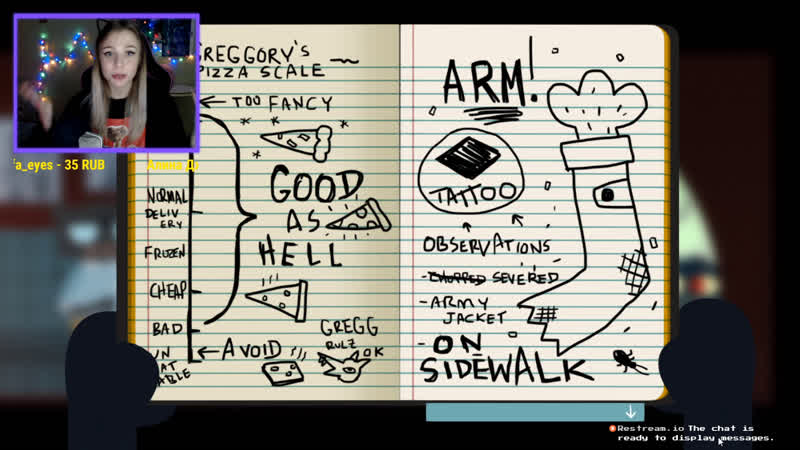 GREGGORY'S
PIZZA SCALE
TOO FANCY
GOOD
AS
HELL
NORMAL
DELIV
ERY
FROZEN
CHEAP
BAD
UN
EAT
ABLE
AVOID
GREGG
RULZ
OK
ARM!
TATTOO
OBSERVATIONS
- CHOPPED SEVERED
- ARMY
JACKET
- ON
SIDEWALK
a_eyes - 35 RUB
Алина Д
Restream.io The chat is
ready to display messages.